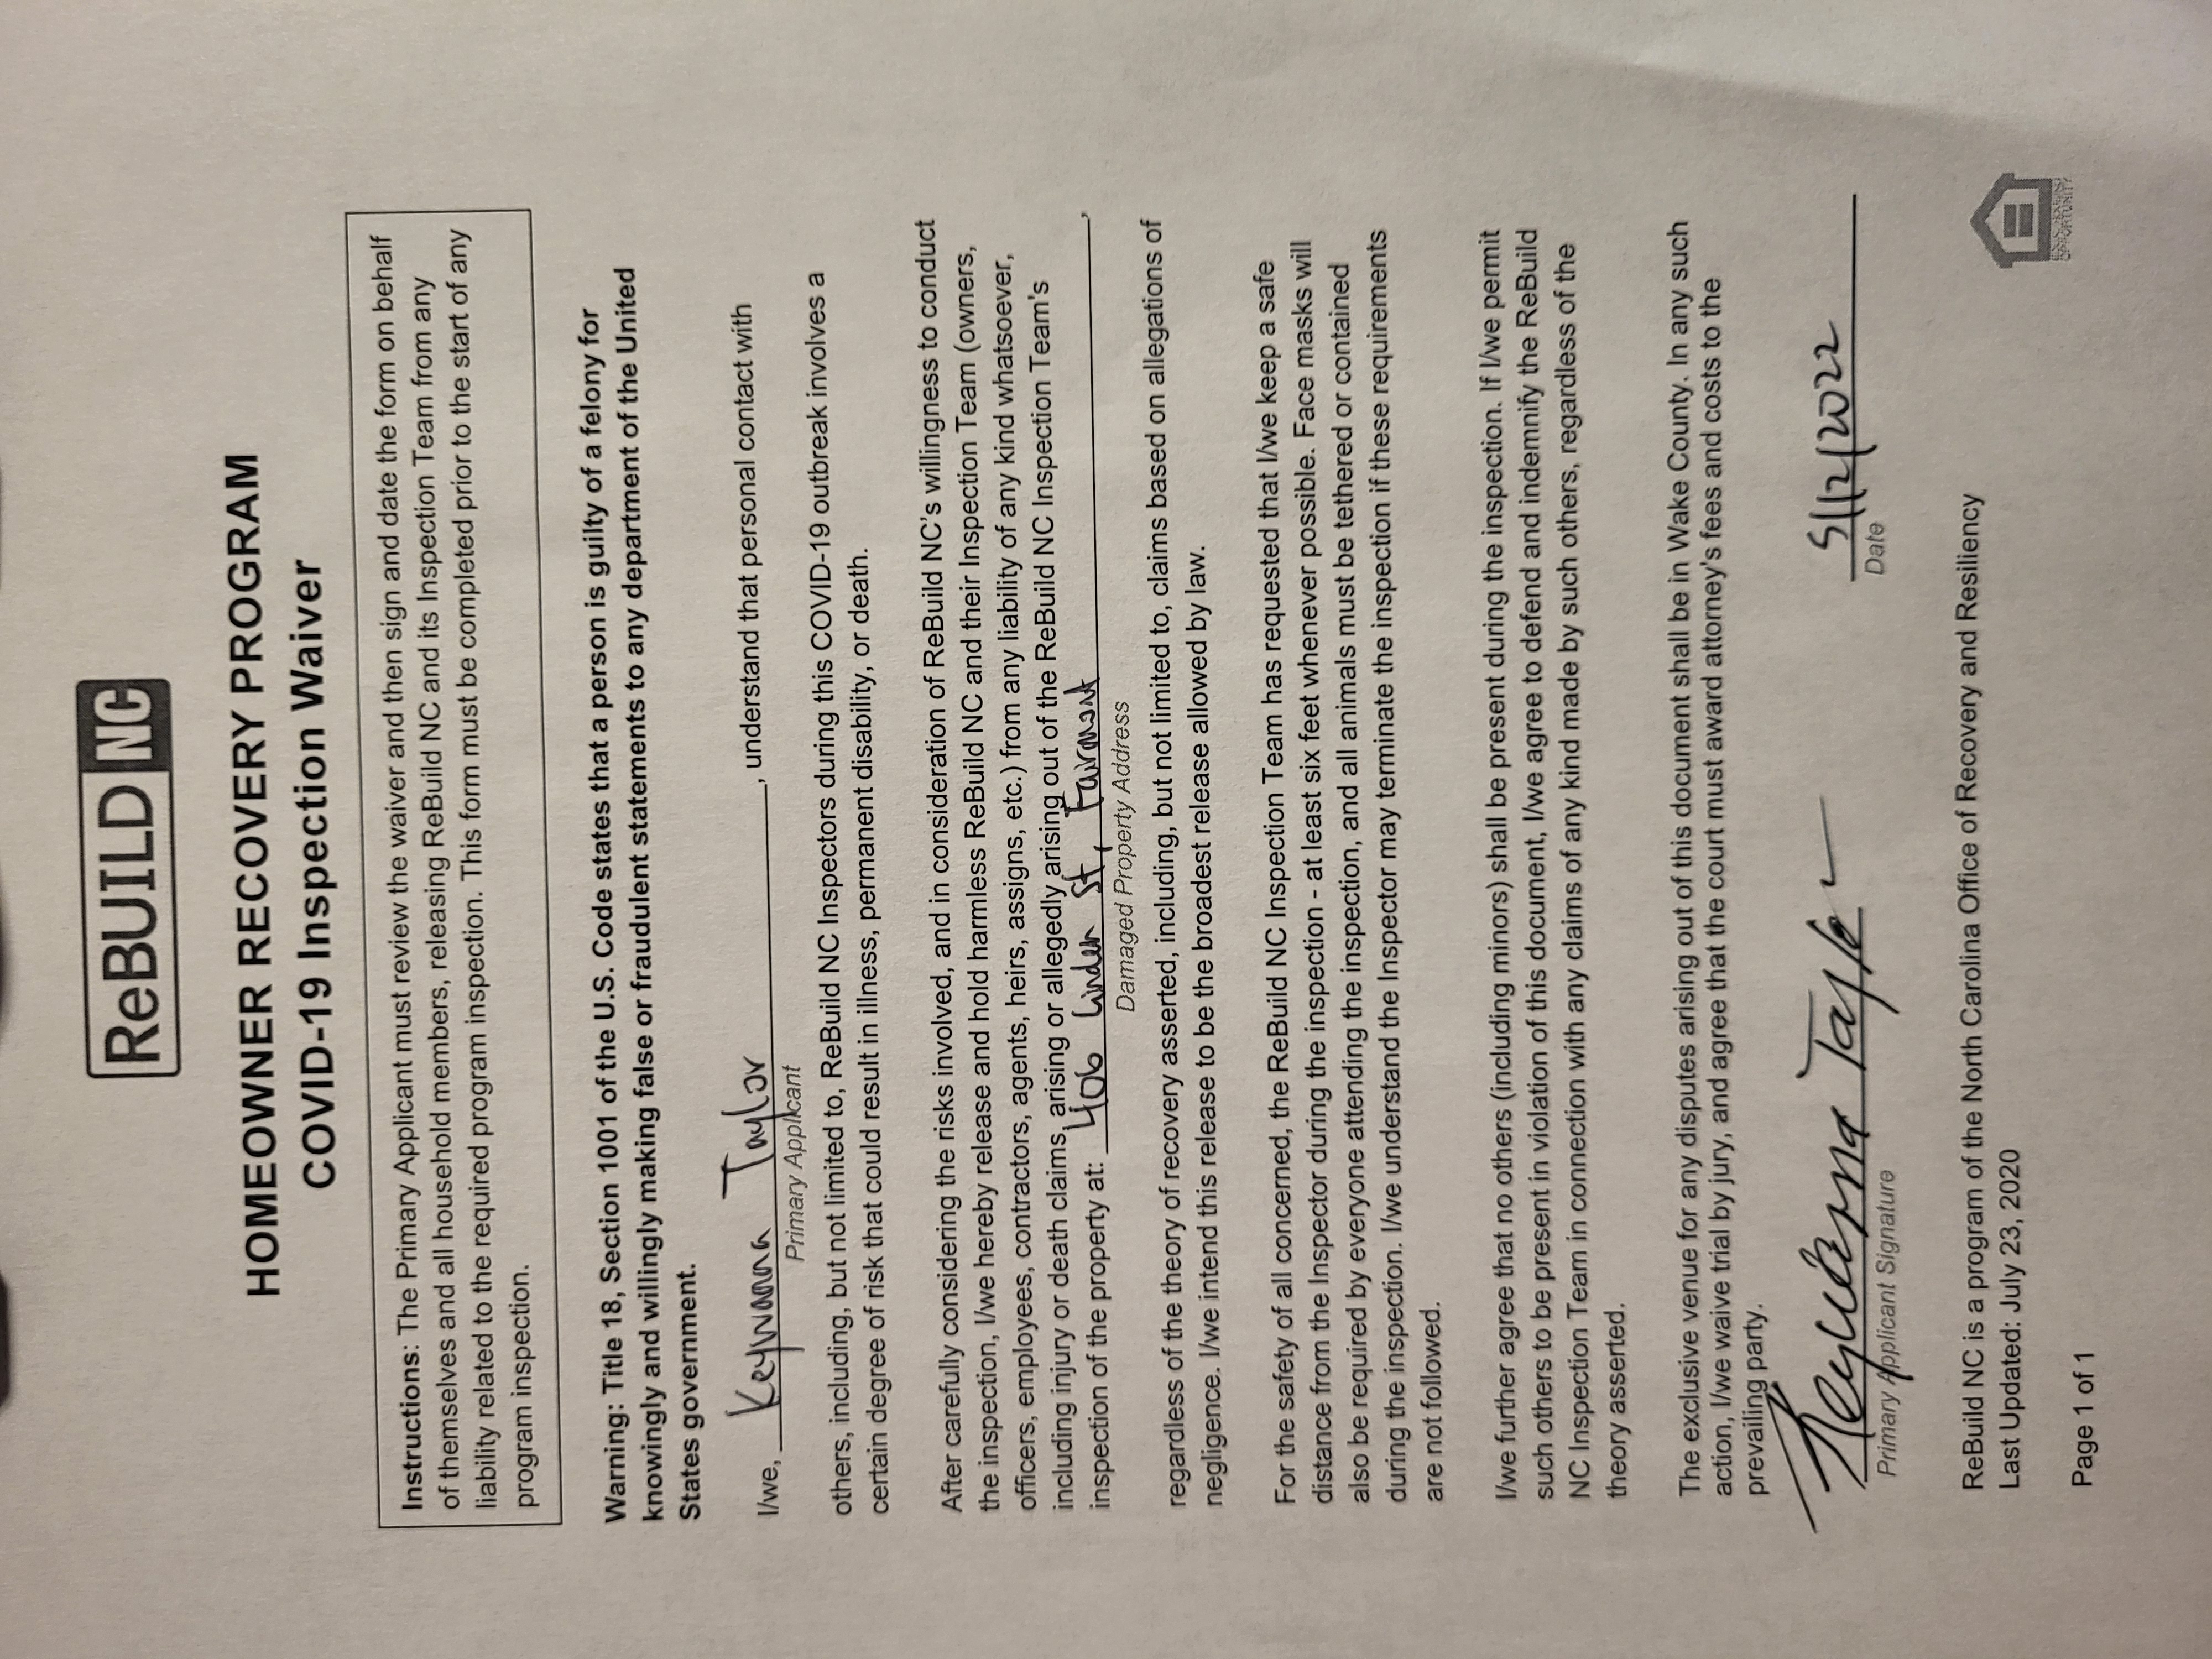 ReBUILD NC
HOMEOWNER RECOVERY PROGRAM
COVID-19 Inspection Waiver
Instructions: The Primary Applicant must review the waiver and then sign and date the form on behalf
of themselves and all household members, releasing ReBuild NC and its Inspection Team from any
liability related to the required program inspection. This form must be completed prior to the start of any
program inspection.
Warning: Title 18, Section 1001 of the U.S. Code states that a person is guilty of a felony for
knowingly and willingly making false or fraudulent statements to any department of the United
States government.
I/we, Keywanna Taylor, understand that personal contact with
Primary Applicant
others, including, but not limited to, ReBuild NC Inspectors during this COVID-19 outbreak involves a
certain degree of risk that could result in illness, permanent disability, or death.
After carefully considering the risks involved, and in consideration of ReBuild NC's willingness to conduct
the inspection, I/we hereby release and hold harmless ReBuild NC and their Inspection Team (owners,
officers, employees, contractors, agents, heirs, assigns, etc.) from any liability of any kind whatsoever,
including injury or death claims, arising or allegedly arising out of the ReBuild NC Inspection Team's
inspection of the property at: 406 Linder St, Fairmont,
Damaged Property Address
regardless of the theory of recovery asserted, including, but not limited to, claims based on allegations of
negligence. I/we intend this release to be the broadest release allowed by law.
For the safety of all concerned, the ReBuild NC Inspection Team has requested that I/we keep a safe
distance from the Inspector during the inspection - at least six feet whenever possible. Face masks will
also be required by everyone attending the inspection, and all animals must be tethered or contained
during the inspection. I/we understand the Inspector may terminate the inspection if these requirements
are not followed.
I/we further agree that no others (including minors) shall be present during the inspection. If I/we permit
such others to be present in violation of this document, I/we agree to defend and indemnify the ReBuild
NC Inspection Team in connection with any claims of any kind made by such others, regardless of the
theory asserted.
The exclusive venue for any disputes arising out of this document shall be in Wake County. In any such
action, I/we waive trial by jury, and agree that the court must award attorney's fees and costs to the
prevailing party.
Keywanna Taylor 5/12/2022
Primary Applicant Signature Date
ReBuild NC is a program of the North Carolina Office of Recovery and Resiliency
Last Updated: July 23, 2020
Page 1 of 1
EQUAL HOUSING
OPPORTUNITY